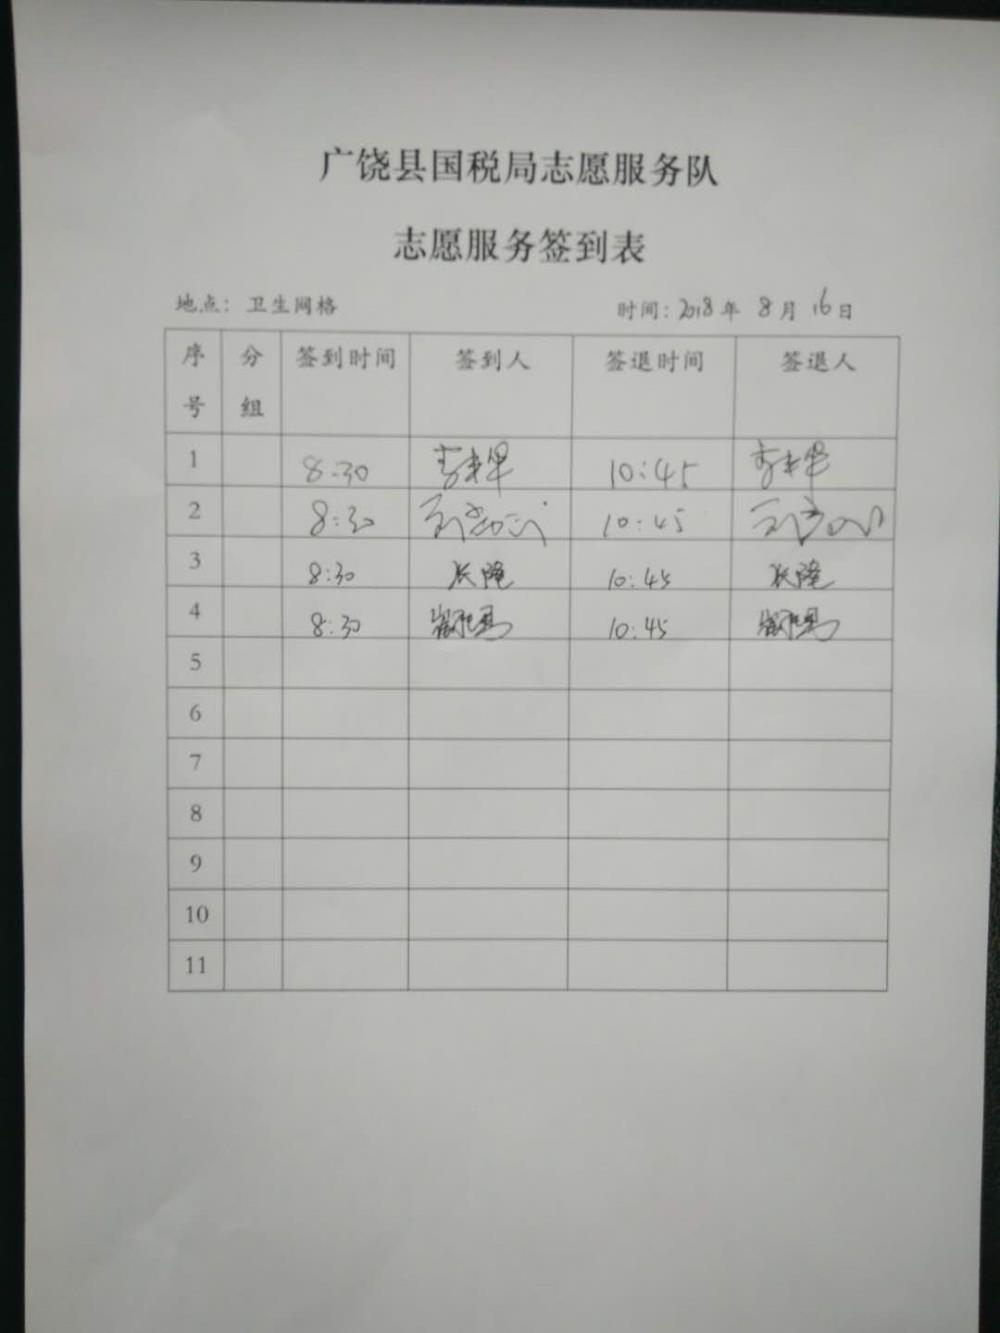 广饶县国税局志愿服务队
志愿服务签到表
地点：卫生网格 时间：2018年 8月 16日
序号 分组 签到时间 签到人 签退时间 签退人
1 8:30 10:45
2 8:30 10:45
3 8:30 张隆 10:45 张隆
4 8:30 10:45
5
6
7
8
9
10
11